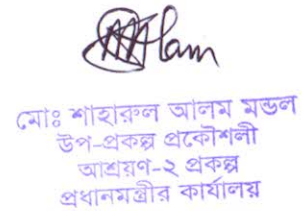 মোঃ শাহারুল আলম মন্ডল
উপ-প্রকল্প প্রকৌশলী
আশ্রয়ণ-২ প্রকল্প
প্রধানমন্ত্রীর কার্যালয়